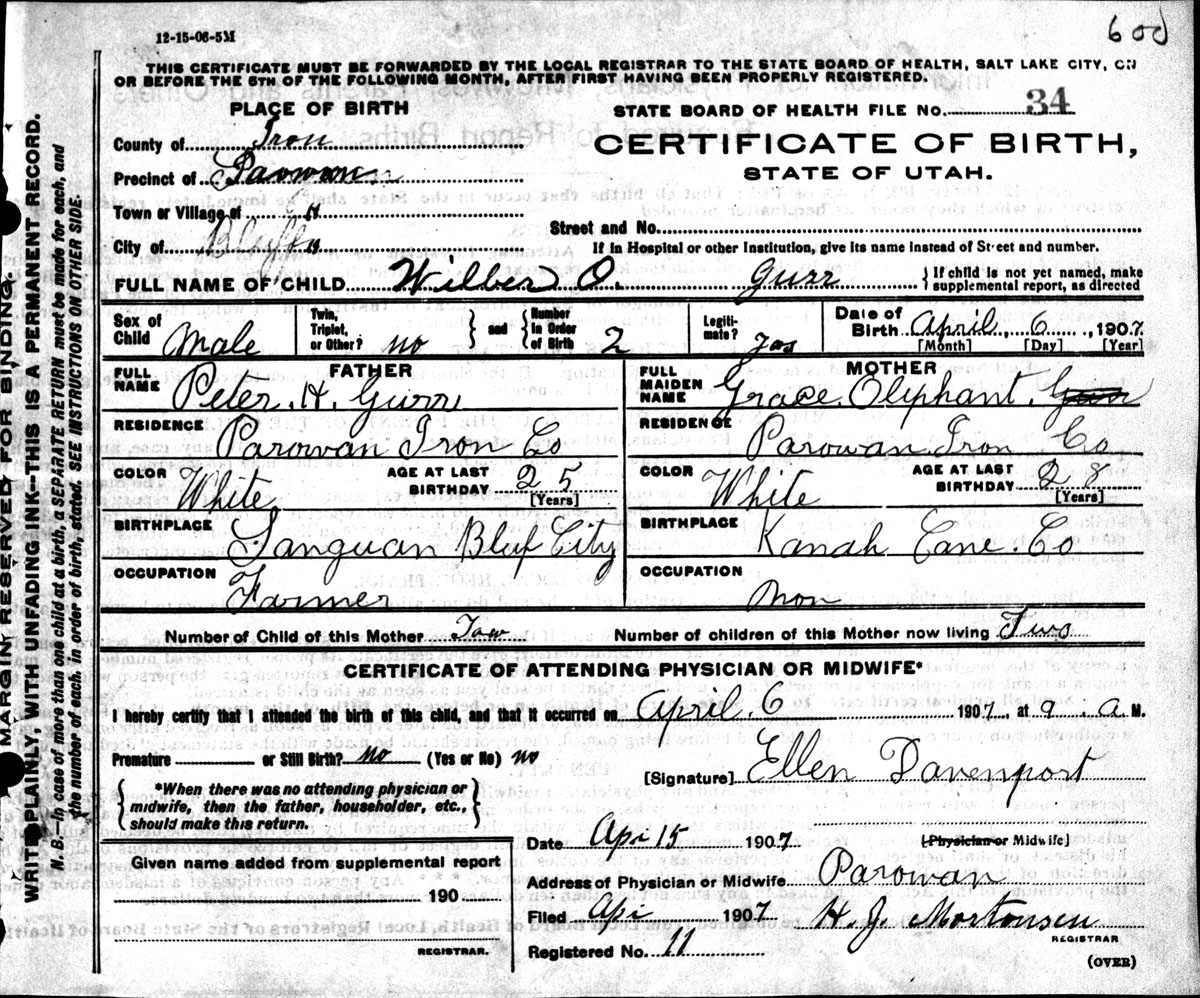 600
12-15-06-5M
THIS CERTIFICATE MUST BE FORWARDED BY THE LOCAL REGISTRAR TO THE STATE BOARD OF HEALTH, SALT LAKE CITY, ON
OR BEFORE THE 5TH OF THE FOLLOWING MONTH, AFTER FIRST HAVING BEEN PROPERLY REGISTERED.
PLACE OF BIRTH
County of Iron
Precinct of Parowan
Town or Village of "
City of Bluff "
STATE BOARD OF HEALTH FILE No. 34
CERTIFICATE OF BIRTH,
STATE OF UTAH.
Street and No.
If in Hospital or other Institution, give its name instead of Street and number.
FULL NAME OF CHILD Wilber O. Gurr { If child is not yet named, make
supplemental report, as directed
Sex of Child Male
Twin, Triplet, or Other? no } and { Number in Order of Birth 2
Legitimate? yas
Date of Birth April 6, 1907
[Month] [Day] [Year]
FATHER
FULL NAME Peter. H. Gurr
RESIDENCE Parowan Iron Co
COLOR White AGE AT LAST BIRTHDAY 25
[Years]
BIRTHPLACE Sanguan Bluf City
OCCUPATION Farmer
MOTHER
FULL MAIDEN NAME Grace. Oliphant. Gurr
RESIDENCE Parowan Iron Co
COLOR White AGE AT LAST BIRTHDAY 28
[Years]
BIRTHPLACE Kanah Cane. Co
OCCUPATION Non
Number of Child of this Mother Tow Number of children of this Mother now living Two
CERTIFICATE OF ATTENDING PHYSICIAN OR MIDWIFE*
I hereby certify that I attended the birth of this child, and that it occurred on April. 6 1907, at 9. A M.
Premature or Still Birth? no (Yes or No) no
{ *When there was no attending physician or
midwife, then the father, householder, etc.,
should make this return. }
[Signature] Ellen Davenport
[Physician or Midwife]
Date Apr 15 1907
Address of Physician or Midwife Parowan
Filed Apr 1907 H. J. Mortensen
REGISTRAR
Registered No. 11
(OVER)
Given name added from supplemental report
190
REGISTRAR.
MARGIN RESERVED FOR BINDING.
WRITE PLAINLY, WITH UNFADING INK—THIS IS A PERMANENT RECORD.
N. B.—In case of more than one child at a birth, a SEPARATE RETURN must be made for each, and
the number of each, in order of birth, stated. SEE INSTRUCTIONS ON OTHER SIDE.